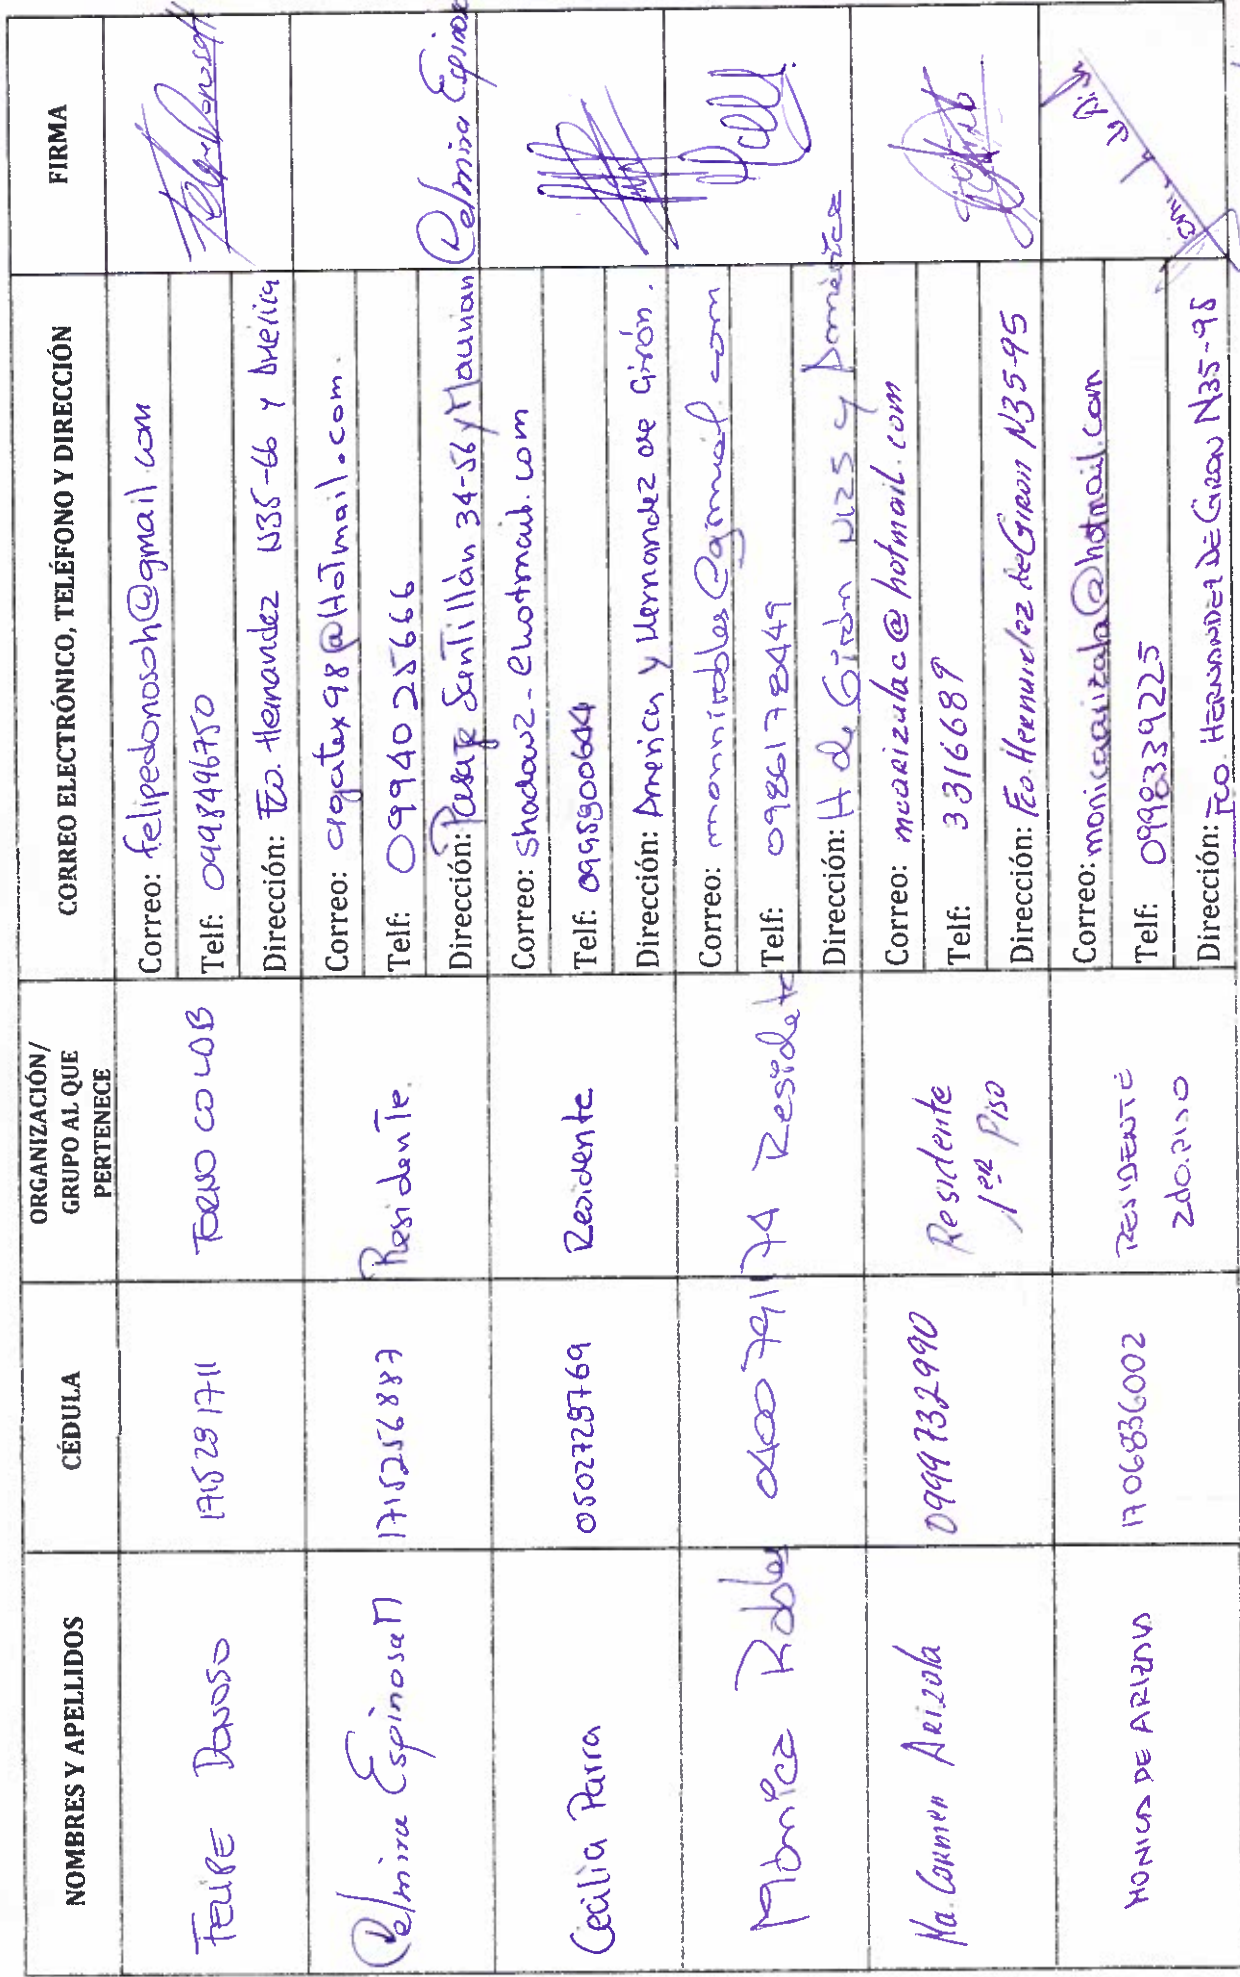 NOMBRES Y APELLIDOS
CÉDULA
ORGANIZACIÓN/
GRUPO AL QUE
PERTENECE
CORREO ELECTRÓNICO, TELÉFONO Y DIRECCIÓN
FIRMA
FELIPE DONOSO
1715291711
TORNO CO LAB
Correo: felipedonosoh@gmail.com
Telf: 0998496750
Dirección: Fco. Hernandez N35-66 y América
Delmira Espinosa M
1715256887
Residente.
Correo: agatax98@Hotmail.com.
Telf: 0994025666
Dirección: Pasaje Santillán 34-56 y Maurian
Delmira Espinosa
Cecilia Parra
0502729769
Residente
Correo: shadow2-c@hotmail.com
Telf: 0995900644
Dirección: America y Hernandez de Girón.
Mónica Robles
0400791174
Residete
Correo: monnirobles@gmail.com
Telf: 0986178449
Dirección: H de Girón N125 y América
Ma. Carmen Arizola
0999732990
Residente
1er Piso
Correo: mcarizulac@hotmail.com
Telf: 3316689
Dirección: Fco. Hernandez de Giron N35-95
MONICA DE ARIZALA
1706836002
RESIDENTE
2do. PISO
Correo: monicaarizala@hotmail.com
Telf: 0998339225
Dirección: Fco. HERNANDEZ DE GIRON N35-95